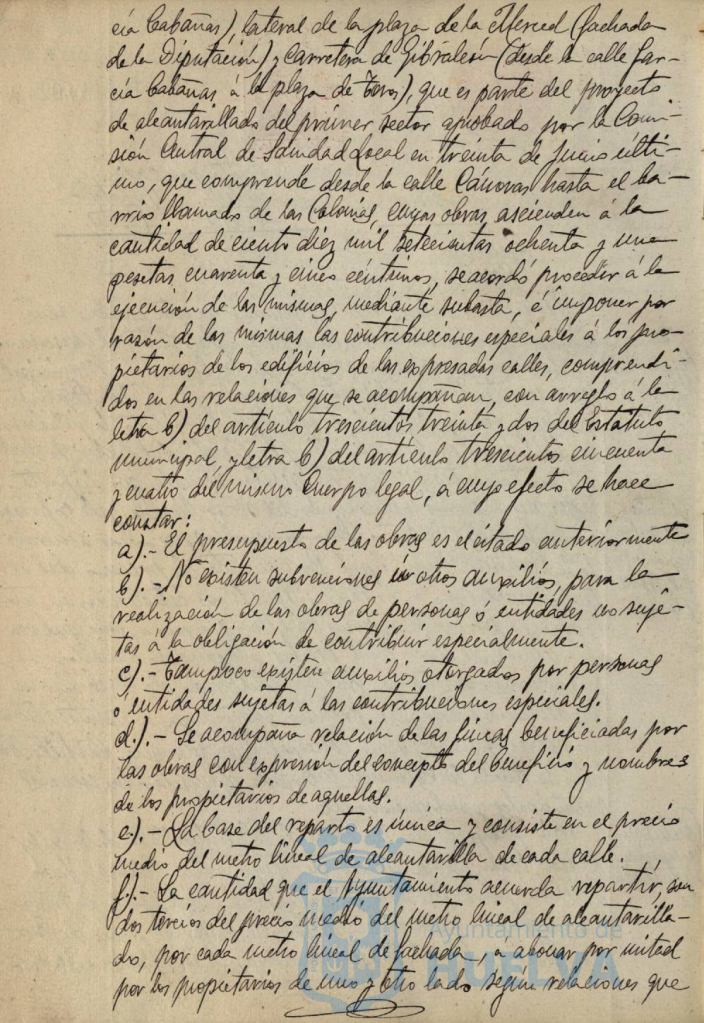 cía Cabañas), lateral de la plaza de la Merced (fachada
de la Diputación) y carretera de Gibraleón (desde la calle Gar-
cía Cabañas á la plaza de Toros), que es parte del proyecto
de alcantarillado del primer sector aprobado por la Comi-
sión Central de Sanidad Local en treinta de Junio últi-
mo, que comprende desde la calle Cánovas hasta el ba-
rrio llamado de las Colonias, cuyas obras ascienden á la
cantidad de ciento diez mil setecientas ochenta y una
pesetas cuarenta y cinco céntimos, se acordó proceder á la
ejecución de las mismas, mediante subasta, é imponer por
razón de las mismas las contribuciones especiales á los pro-
pietarios de los edificios de las expresadas calles, comprendi-
dos en las relaciones que se acompañan, con arreglo á la
letra b) del artículo trescientos treinta y dos del Estatuto
municipal, y letra b) del artículo trescientos cincuenta
y cuatro del mismo Cuerpo legal, á cuyo efecto se hace
constar:
a).- El presupuesto de las obras es el citado anteriormente
b).- No existen subvenciones ni otros auxilios, para la
realización de las obras de personas ó entidades no suje-
tas á la obligación de contribuir especialmente.
c).- Tampoco existen auxilios otorgados por personas
ó entidades sujetas á las contribuciones especiales.
d.).- Se acompaña relación de las fincas beneficiadas por
las obras con expresión del concepto del beneficio y nombres
de los propietarios de aquellas.
e).- La base del reparto es única y consiste en el precio
medio del metro lineal de alcantarilla de cada calle.
f).- La cantidad que el Ayuntamiento acuerda repartir, son
dos tercios del precio medio del metro lineal de alcantarilla-
do, por cada metro lineal de fachada, á abonar por mitad
por los propietarios de uno y otro lado según relaciones que
Ayuntamiento de
HUELVA